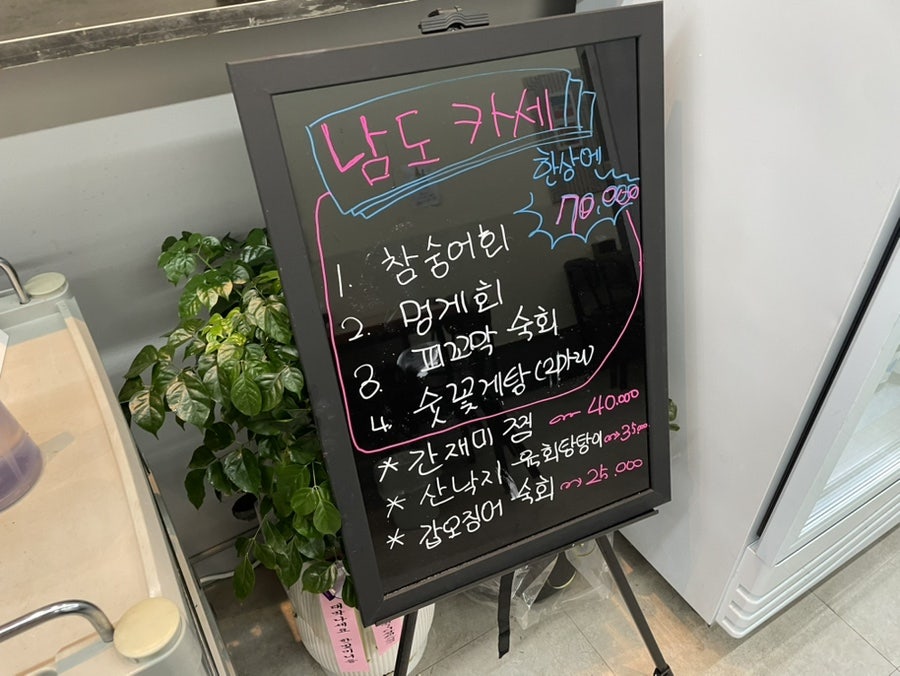 남도 카세
한상에
70,000
1. 참숭어회
2. 멍게회
3. 피꼬막 숙회
4. 숫꽃게탕(2마리)
* 간재미 찜 ~ 40.000
* 산낙지 육회탕탕이 ~ 35.000
* 갑오징어 숙회 ~ 25.000
대박나세요